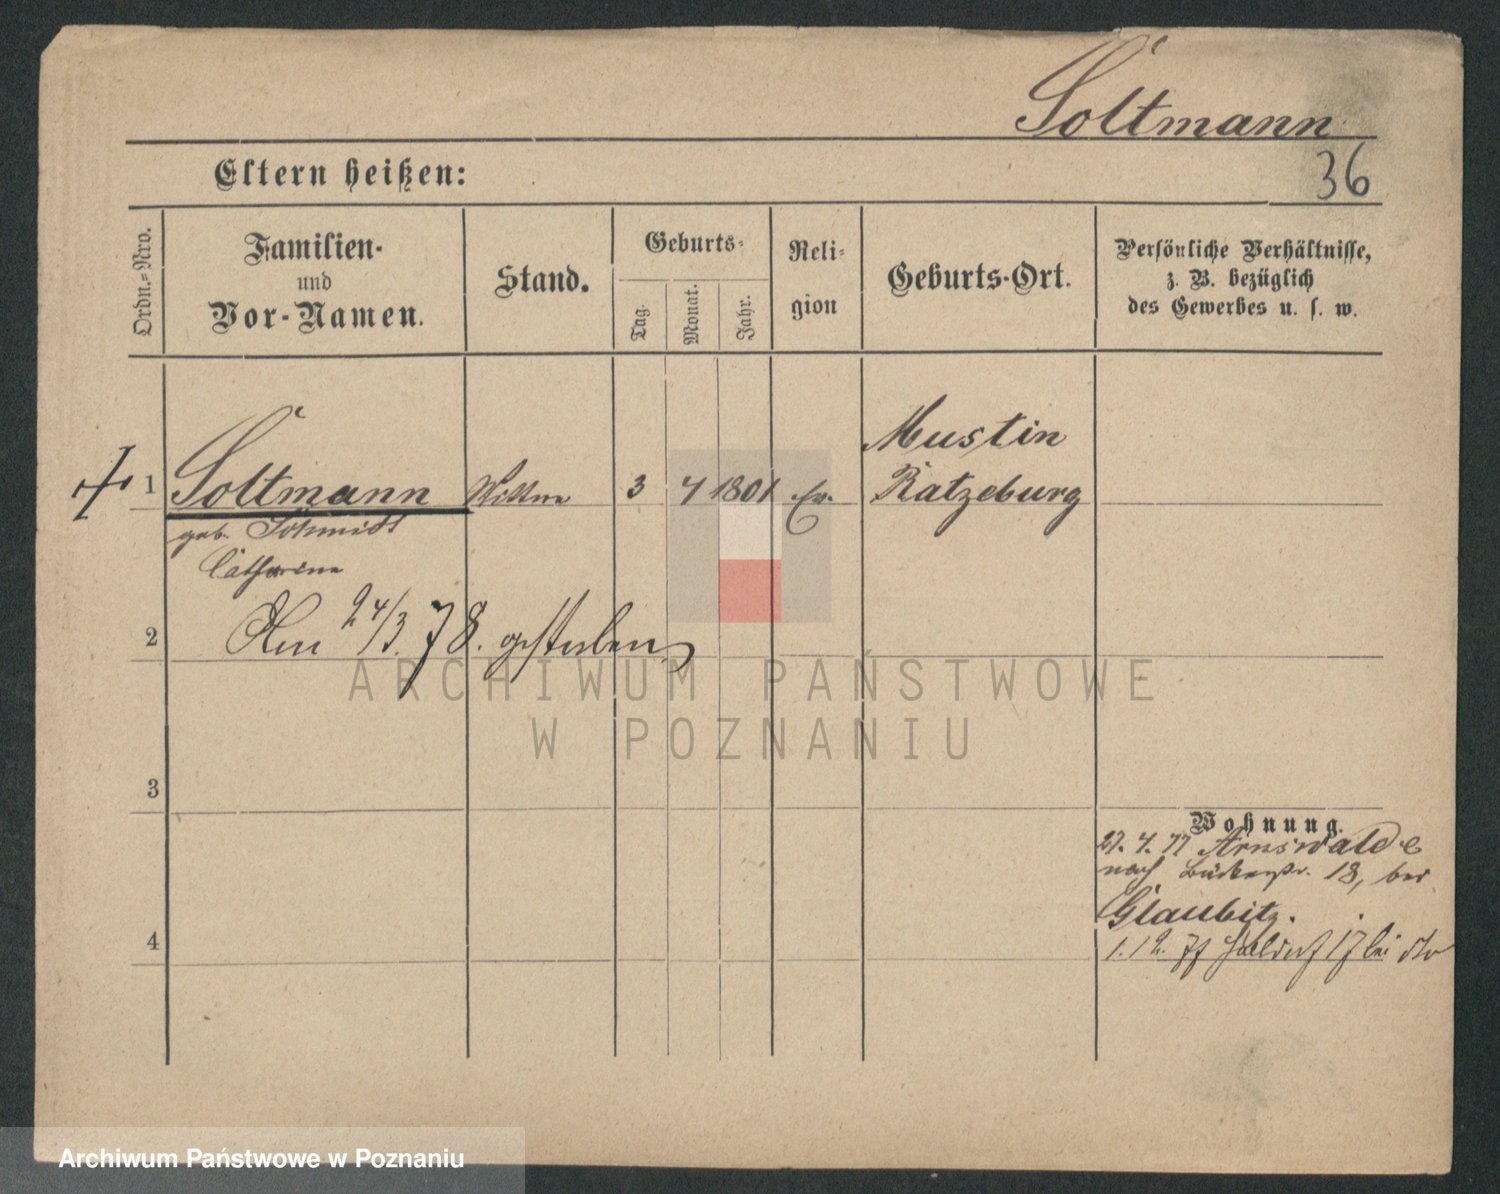 Soltmann
Eltern heißen:
36
Ordn.-Nro.
Familien-
und
Vor-Namen.
Stand.
Geburts-
Tag.
Monat.
Jahr.
Reli-
gion
Geburts-Ort.
Persönliche Verhältnisse,
z. B. bezüglich
des Gewerbes u. s. w.
Mustin
1 Soltmann Wittwe 3 4 1801 Ev. Ratzeburg
geb. Schmidt
Catharine
2 Am 24/3. 78. gestorben
ARCHIWUM PAŃSTWOWE
W POZNANIU
3
Wohnung.
27. 4. 77 Arnswalde
nach 18, bei
Glaubitz.
4
1. 12. 77 17 bei dto
Archiwum Państwowe w Poznaniu